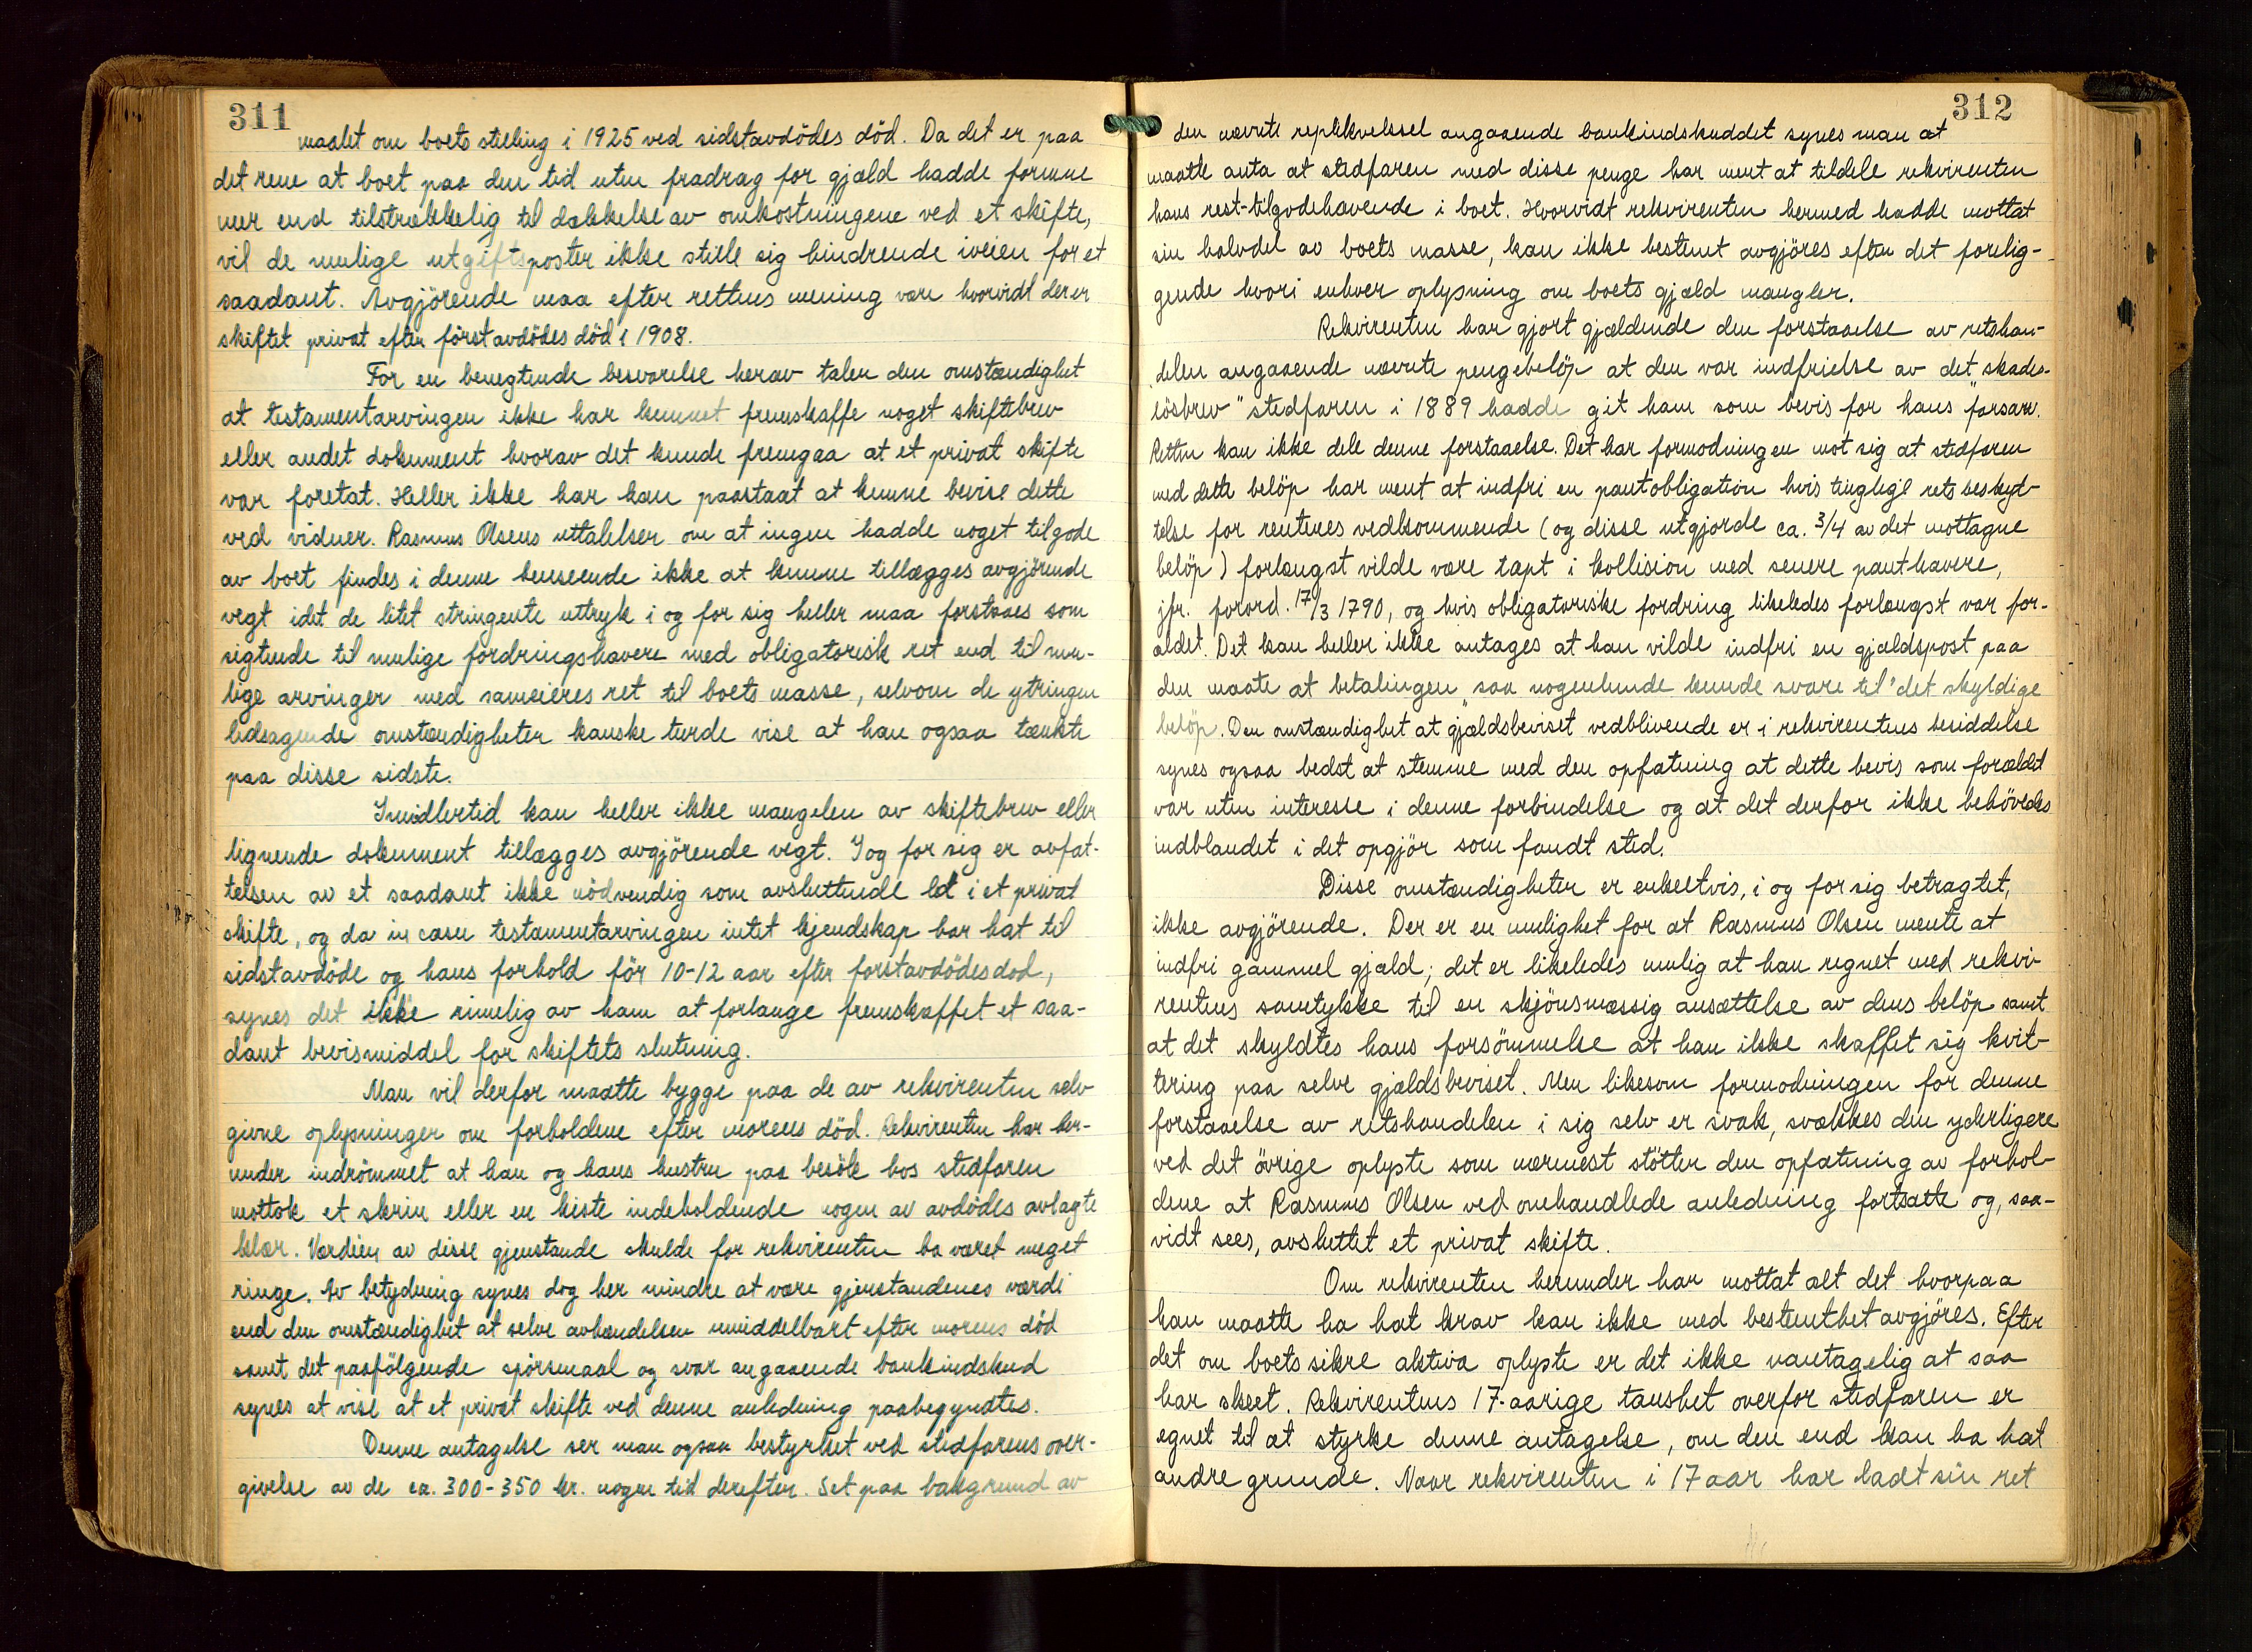 311
maalet om boets stilling i 1925 ved sidstavdödes död. Da det er paa
det rene at boet paa den tid uten fradrag for gjæld hadde formue
mer end tilstrækkelig til dækkelse av omkostningene ved et skifte,
vil de mulige utgiftsposter ikke stille sig hindrende iveien for et
saadant. Avgjörende maa efter rettens mening være hvorvidt der er
skiftet privat efter förstavdödes död i 1908.
For en benegtende besvarelse herav taler den omstændighet
at testamentarvingen ikke har kunnet fremskaffe noget skiftebrev
eller andet dokument hvorav det kunde fremgaa at et privat skifte
var foretat. Heller ikke har han paastaat at kunne bevise dette
ved vidner. Rasmus Olsens uttalelser om at ingen hadde noget tilgode
av boet findes i denne henseende ikke at kunne tillægges avgjörende
vegt idet de litet stringente uttryk i og for sig heller maa forstaaes som
sigtende til mulige fordringshavere med obligatorisk ret end til mu-
lige arvinger med sameieres ret til boets masse, selvom de ytringen
ledsagende omstændigheter kanske turde vise at han ogsaa tænkte
paa disse sidste.
Imidlertid kan heller ikke mangelen av skiftebrev eller
lignende dokument tillægges avgjörende vegt. I og for sig er avfat-
telsen av et saadant ikke nödvendig som avsluttende led i et privat
skifte, og da in casu testamentarvingen intet kjendskap har hat til
sidstavdöde og hans forhold för 10-12 aar efter förstavdödes död,
synes det ikke rimelig av ham at forlange fremskaffet et saa-
dant bevismiddel for skiftets slutning.
Man vil derfor maatte bygge paa de av rekvirenten selv
givne oplysninger om forholdene efter morens död. Rekvirenten har her-
under indrömmet at han og hans hustru paa besök hos stedfaren
mottok et skrin eller en kiste indeholdende nogen av avdödes avlagte
klær. Værdien av disse gjenstande skulde for rekvirenten ha været meget
ringe. Av betydning synes dog her mindre at være gjenstandenes værdi
end den omstændighet at selve avhændelsen umiddelbart efter morens död
samt det paafölgende spörsmaal og svar angaaende bankindskud
synes at vise at et privat skifte ved denne anledning paabegyndtes.
Denne antagelse ser man ogsaa bestyrket ved stedfarens over-
givelse av de ca. 300-350 kr. nogen tid derefter. Set paa bakgrund av
312
den nævnte replikveksel angaaende bankindskuddet synes man at
maatte anta at stedfaren med disse penge har ment at tildele rekvirenten
hans rest-tilgodehavende i boet. Hvorvidt rekvirenten hermed hadde mottat
sin halvdel av boets masse, kan ikke bestemt avgjöres efter det forelig-
gende hvori enhver oplysning om boets gjæld mangler.
Rekvirenten har gjort gjældende den forstaaelse av retshan-
delen angaaende nævnte pengebelöp at den var indfrielse av det "skades-
lösbrev" stedfaren i 1889 hadde git ham som bevis for hans farsarv.
Retten kan ikke dele denne forstaaelse. Det har formodningen mot sig at stedfaren
med dette belöp har ment at indfri en pantobligation hvis tinglige retsbeskyt-
telse for rentenes vedkommende (og disse utgjorde ca. 3/4 av det mottagne
belöp) forlængst vilde være tapt i kollision med senere panthavere,
jfr. forord. 17/3 1790, og hvis obligatoriske fordring likeledes forlængst var for-
ældet. Det kan heller ikke antages at han vilde indfri en gjældspost paa
den maate at betalingen "saa nogenlunde kunde svare til" det skyldige
belöp. Den omstændighet at gjældsbeviset vedblivende er i rekvirentens besiddelse
synes ogsaa bedst at stemme med den opfatning at dette bevis som forældet
var uten interesse i denne forbindelse og at det derfor ikke behövedes
indblandet i det opgjör som fandt sted.
Disse omstændigheter er enkeltvis, i og for sig betragtet,
ikke avgjörende. Der er en mulighet for at Rasmus Olsen mente at
indfri gammel gjæld; det er likeledes mulig at han regnet med rekvi-
rentens samtykke til en skjönsmæssig ansættelse av dens belöp samt
at det skyldtes hans forsömmelse at han ikke skaffet sig kvit-
tering paa selve gjældsbeviset. Men likesom formodningen for denne
forstaaelse av retshandelen i sig selv er svak, svækkes den yderligere
ved det övrige oplyste som nærmest stötter den opfatning av forhol-
dene at Rasmus Olsen ved omhandlede anledning fortsatte og, saa-
vidt sees, avsluttet et privat skifte.
Om rekvirenten herunder har mottat alt det hvorpaa
han maatte ha hat krav kan ikke med bestemthet avgjöres. Efter
det om boets sikre aktiva oplyste er det ikke uantagelig at saa
har skeet. Rekvirentens 17-aarige taushet overfor stedfaren er
egnet til at styrke denne antagelse, om den end kan ha hat
andre grunde. Naar rekvirenten i 17 aar har ladt sin ret